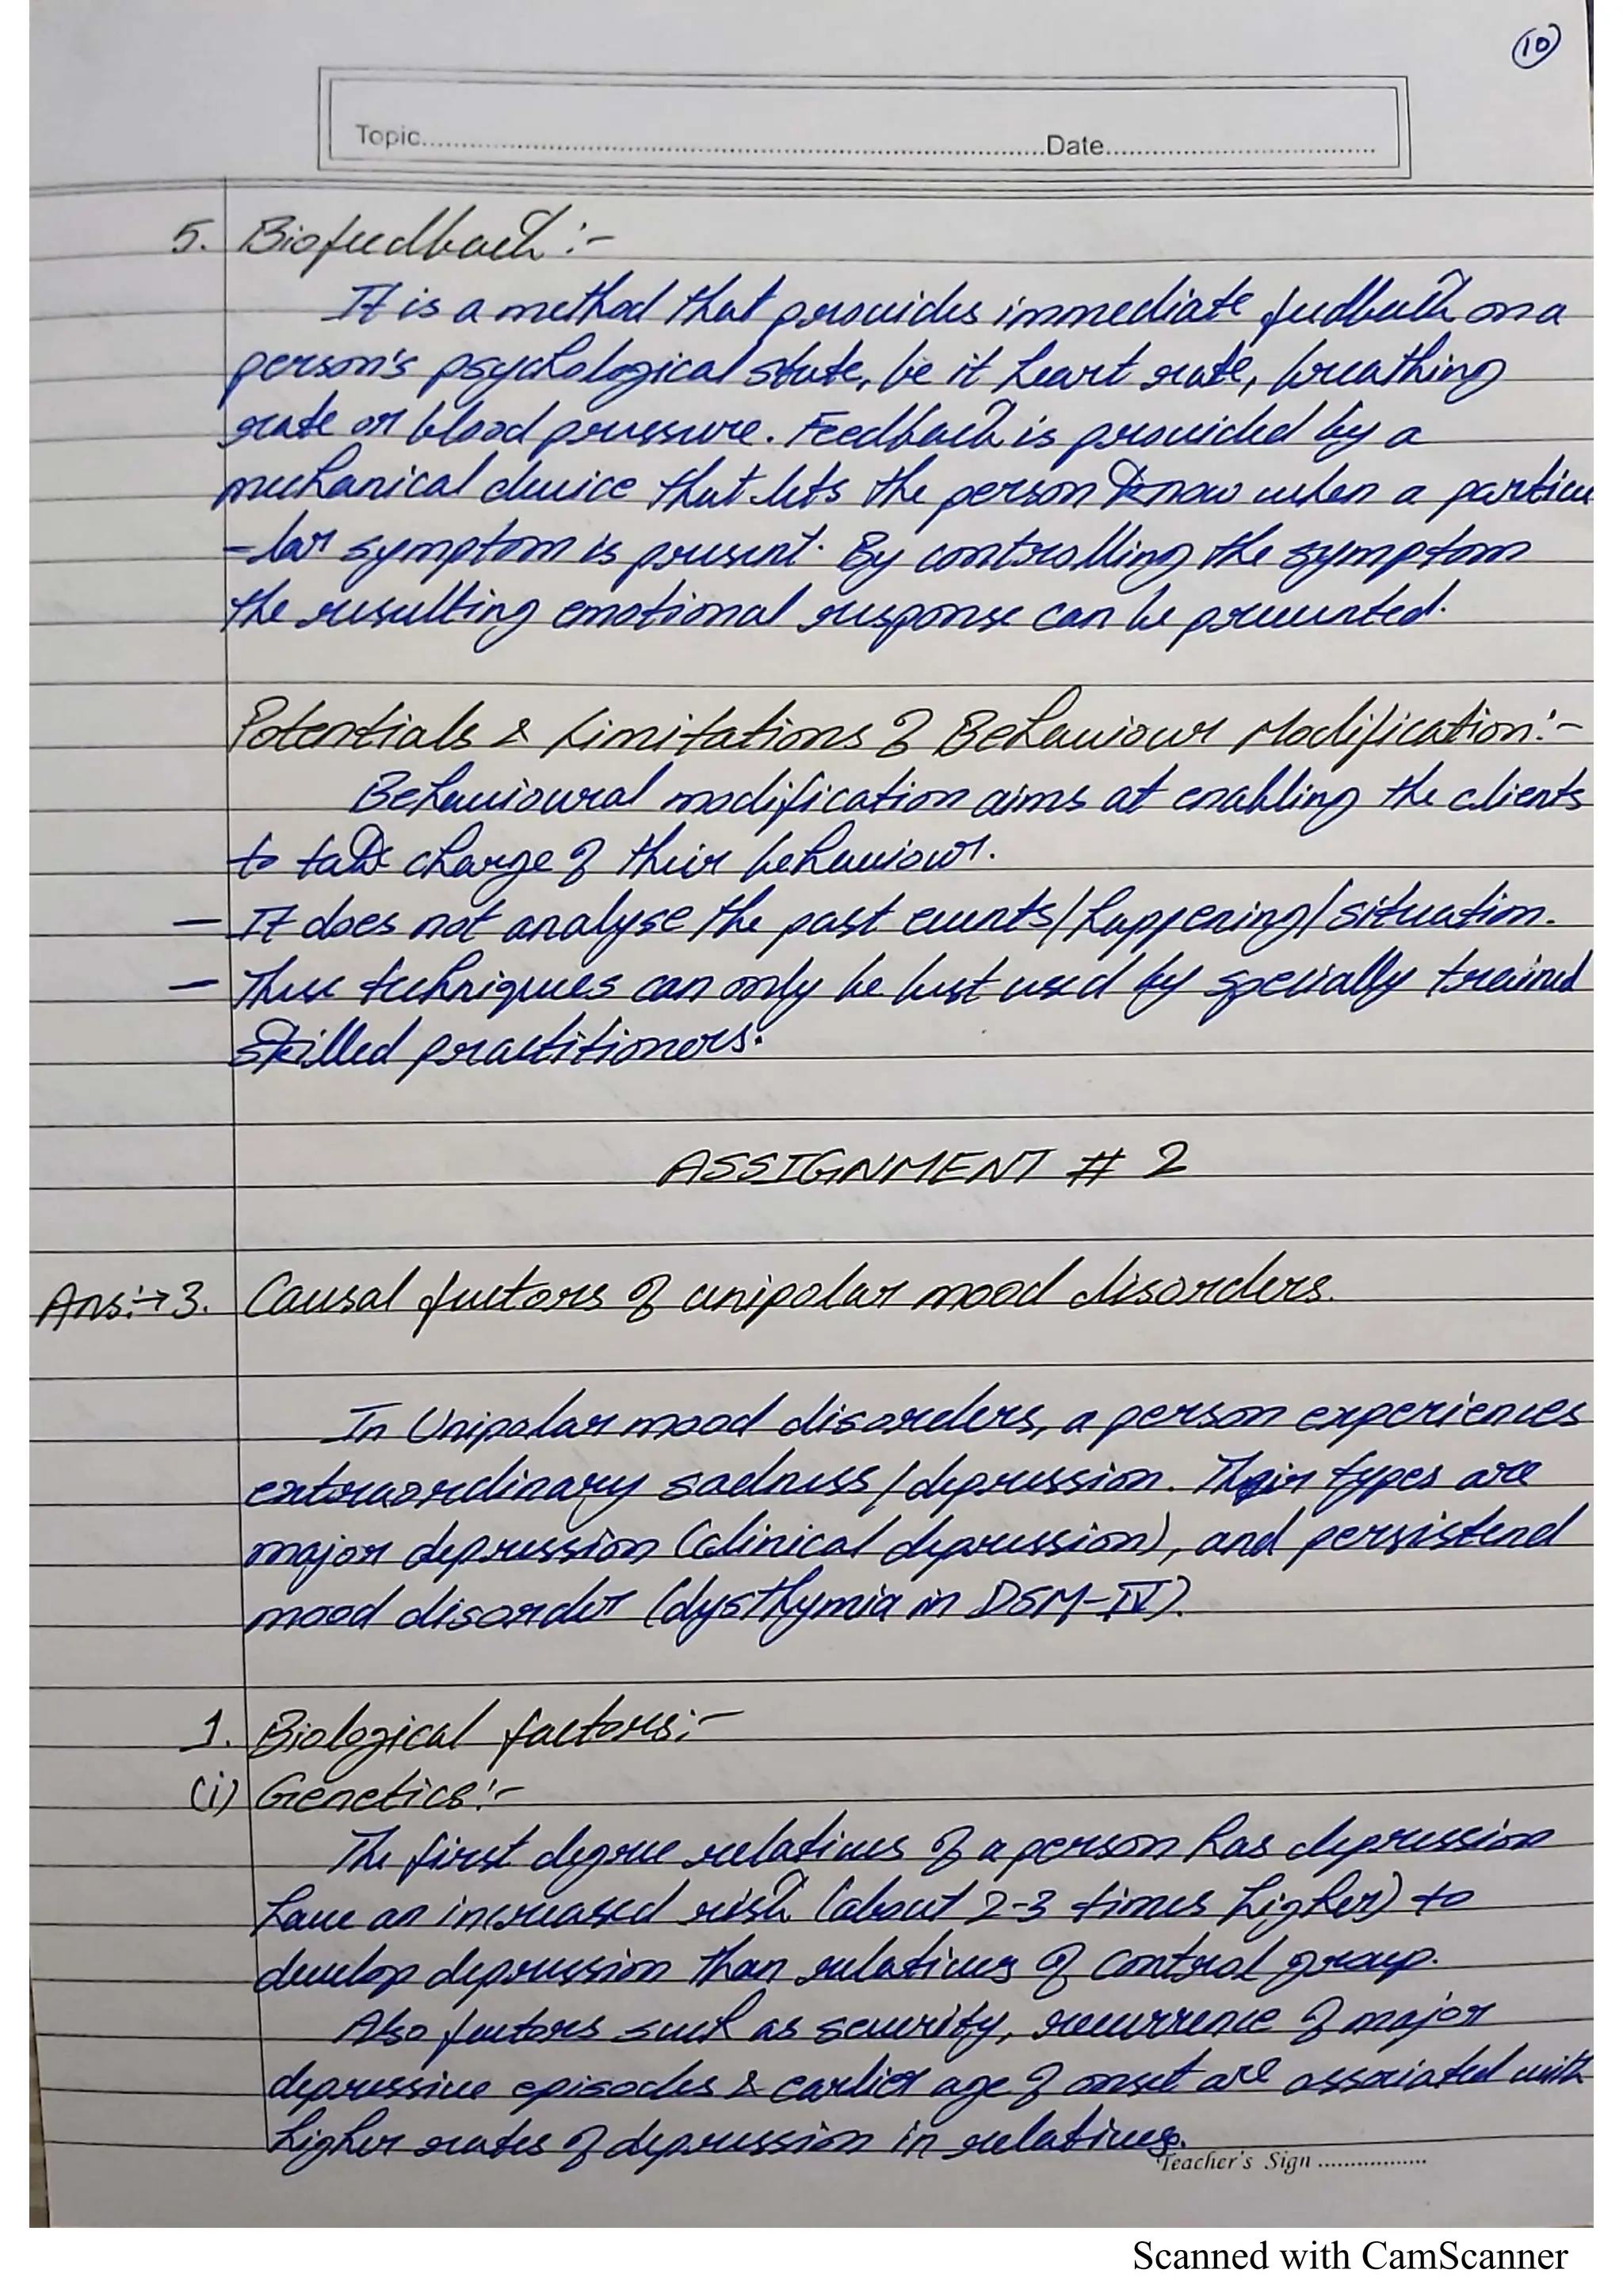 10
Topic..............................Date..............................
5. Biofeedback:-
It is a method that provides immediate feedback on a
person's psychological state, be it heart rate, breathing
rate or blood pressure. Feedback is provided by a
mechanical device that lets the person know when a particu
-lar symptom is present. By controlling the symptom
the resulting emotional response can be prevented.
Potentials & Limitations of Behaviour Modification:-
Behavioural modification aims at enabling the clients
to take charge of their behaviour.
- It does not analyse the past events/happening/situation.
- These techniques can only be best used by specially trained
skilled practitioners.
ASSIGNMENT # 2
Ans:→3. Causal factors of unipolar mood disorders.
In Unipolar mood disorders, a person experiences
extraordinary sadness/depression. Their types are
major depression (clinical depression), and persistend
mood disorder (dysthymia in DSM-IV).
1. Biological factors:-
(i) Genetics:-
The first degree relatives of a person has depression
have an increased risk (about 2-3 times higher) to
develop depression than relatives of control group.
Also factors such as severity, recurrence of major
depressive episodes & earlier age of onset are associated with
higher rates of depression in relatives.
Teacher's Sign .................
Scanned with CamScanner